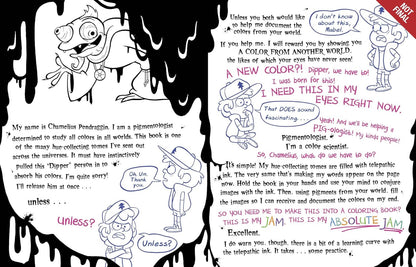 My name is Chamelius Pendraggin. I am a pigmentologist
determined to study all colors in all worlds. This book is one
of the many hue-collecting tomes I've sent out
across the universes. It must have instinctively
pulled this "Dipper" person in to
absorb his colors. I'm quite sorry!
I'll release him at once . . .
Oh. Um.
Thank
you.
unless . . .
unless?
Unless?
NOT
FINAL
Unless you both would like
to help me document the
colors from your world.
I don't know
about this,
Mabel.
If you help me, I will reward you by showing you
A COLOR FROM ANOTHER WORLD,
the likes of which your eyes have never seen!
A NEW COLOR?! Dipper, we have to!
I was born for this!
I NEED THIS IN MY
EYES RIGHT NOW.
That DOES sound
fascinating...
Yeah! And we'll be helping a
PIG-ologist! My kinda people!
Pigmentologist.
I'm a color scientist.
So, Chamelius, what do we have to do?
It's simple! My hue-collecting tomes are filled with telepathic
ink. The very same that's making my words appear on the page
now. Hold the book in your hands and use your mind to conjure
images with the ink. Then, using pigments from your world, fill
the images so I can receive and document the colors on my end.
SO YOU NEED US TO MAKE THIS INTO A COLORING BOOK?
THIS IS MY JAM. THIS IS MY ABSOLUTE JAM.
Excellent.
I do warn you, though, there is a bit of a learning curve with
the telepathic ink. It takes . . . some practice.